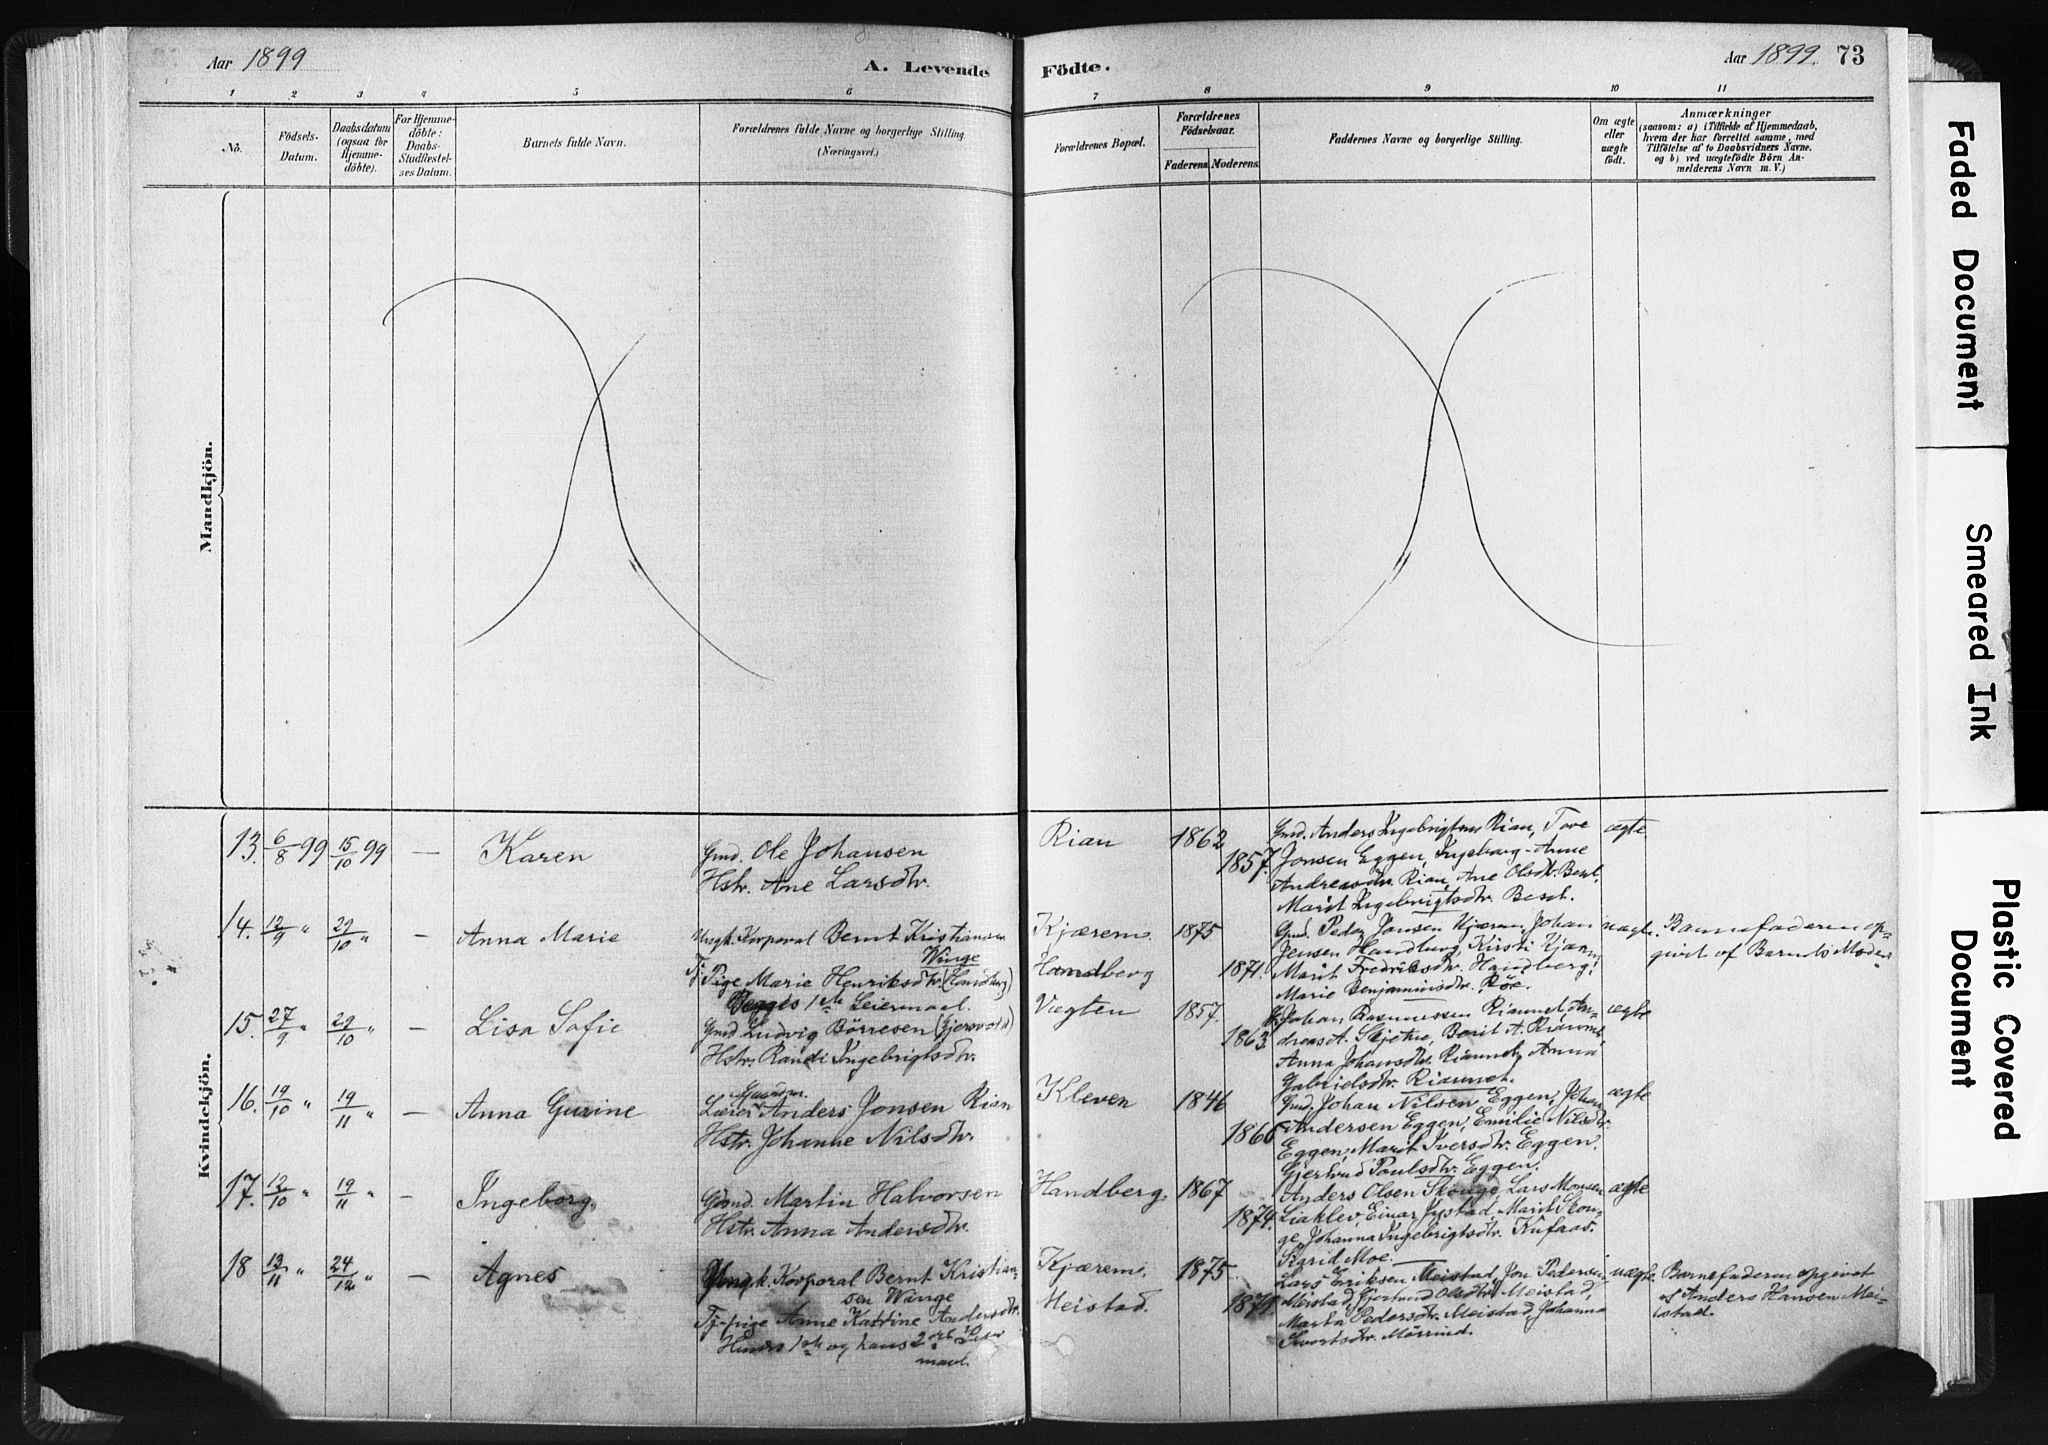 Aar 1899
A. Levende
Födte.
Aar 1899. 73
1 2 3 4 5 6 7 8 9 10 11
No.
Födsels-
Datum.
Daabsdatum
(ogsaa for
Hjemme-
döbte).
For Hjemme-
döbte:
Daabs-
Stadfæstel-
ses Datum.
Barnets fulde Navn.
Forældrenes fulde Navne og borgerlige Stilling.
(Næringsvei.)
Forældrenes Bopæl.
Forældrenes
Födselsaar.
Faderens. Moderens.
Faddernes Navne og borgerlige Stilling.
Om ægte
eller
uægte
födt.
Anmærkninger
(saasom: a) i Tilfælde af Hjemmedaab,
hvem der har forrettet samme, med
Tilföielse af to Daabsvidners Navne.
og b) ved uægtefödte Börn An-
melderens Navn m. V.)
Mandkjön.
Kvindekjön.
13. 6/8 99 15/10 99 — Karen
Gmd. Ole Johansen
Hstr. Ane Larsdtr.
Rian 1862
1857.
Gmd. Anders Ingebrigtsen Rian, Tove
Jonsen Eggen, Ingeborg-Anne
Andreasdtr. Rian, Ane Olsdtr. Besk,
Marit Ingebrigtsdtr. Besk.
ægte
14. 12/9 " 29/10 " — Anna Marie
Ungk. Korporal Bernt Kristiansen
Winge
Tj. Pige Marie Henriksdtr. (Handberg)
Begges 1ste Leiermaal.
Kjærem. 1875
Handberg 1871.
Gmd. Peder Jonsen Kjærem, Johan
Jensen Handberg, Kirsti Kjærem,
Marit Fredriksdtr. Handberg,
Marie Benjaminsdtr. Röe.
uægte.
Barnefaderen op-
givet af Barnets Moder
15. 27/9 " 29/10 " — Lisa Sofie
Gmd. Ludvig Börresen (Gjersvold)
Hstr. Randi Ingebrigtsdtr.
Vægten 1857.
1863.
Johan Rasmussen Riaunet, An-
dreas A. Skjethe, Berit A. Riaunet,
Anna Johansdtr. Riaunet, Anna
Gabrielsdtr. Riaunet.
ægte
16. 19/10 " 19/11 " — Anna Gurine
Gaardm.
Lærer Anders Jonsen Rian
Hstr. Johanne Nilsdtr.
Kleven 1846
1866
Gmd. Johan Nilsen Eggen, Johan
Andersen Eggen, Emilie Nilsdtr.
Eggen, Marit Iversdtr. Eggen,
Gjertrud Poulsdtr. Eggen.
ægte
17. 12/10 " 19/11 " — Ingeborg.
Gmd. Martin Halvorsen
Hstr. Anna Andersdtr.
Handberg. 1867
1874.
Anders Olsen Skouge, Lars Monsen
Liaklev, Einar Jystad, Marit Skou-
ge, Johanna Ingebrigtsdtr. Kufaas.
Sigrid Moe.
ægte
18 13/11 " 24/12 " — Agnes
Ungk. Korporal Bernt Kristian-
sen Winge
Tj-pige Anne Katrine Andersdtr.
Hendes 1ste og hans 2det Leier
maal.
Kjærem. 1875
Meistad.
Lars Eriksen Meistad, Jon Pedersen
Meistad, Gjertrud Olsdtr. Meistad,
Marta Pedersdtr. Meistad, Johanna
Sivertsdtr. Mörrind.
uægte.
Barnefaderen opgivet
af Anders Hansen Mei-
stad.
Faded Document
Smeared Ink
Plastic Covered
Document